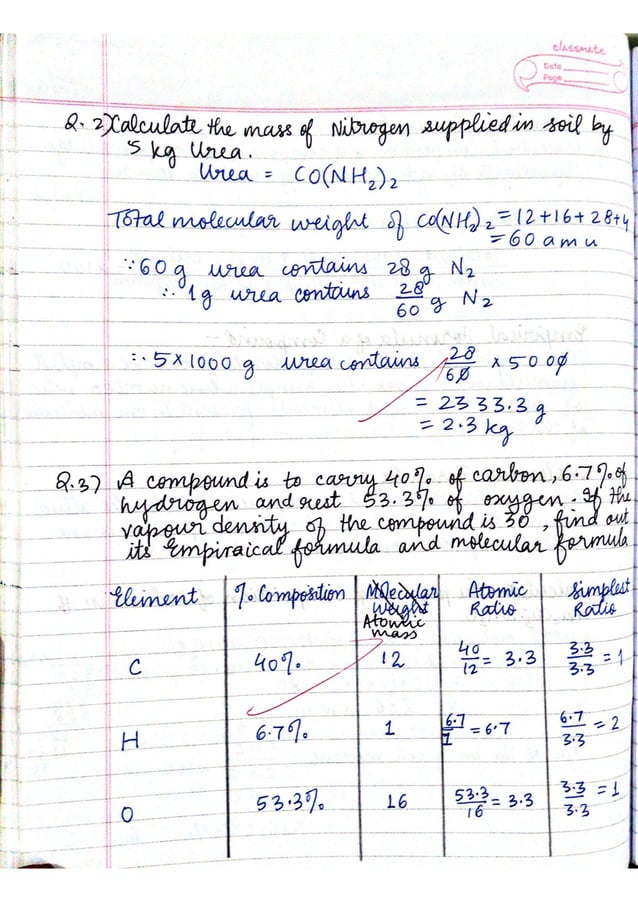 classmate
Date
Page
Q. 2) Calculate the mass of Nitrogen supplied in soil by
5 kg Urea.
Urea = CO(NH2)2
Total molecular weight of CO(NH2)2 = 12+16+28+4
= 60 amu
∵ 60 g urea contains 28 g N2
∴ 1g urea contains 28/60 g N2
∴ 5 × 1000 g urea contains 28/60 × 5000
= 2333.3 g
= 2.3 kg
Q.3) A compound is to carry 40% of carbon, 6.7% of
hydrogen and rest 53.3% of oxygen. If the
vapour density of the compound is 30, find out
its Empiraical formula and molecular formula
Element % Composition Molecular Weight Atomic mass Atomic Ratio Simplest Ratio
C 40% 12 40/12 = 3.3 3.3/3.3 = 1
H 6.7% 1 6.7/1 = 6.7 6.7/3.3 = 2
O 53.3% 16 53.3/16 = 3.3 3.3/3.3 = 1